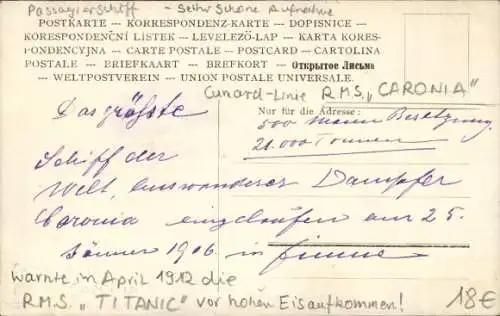 Passagierschiff - Sehr Schöne Aufnahme
POSTKARTE --- KORRESPONDENZ-KARTE --- DOPISNICE --
KORESPONDENČNÍ LÍSTEK -- LEVELEZŐ-LAP -- KARTA KORES-
PONDENCYJNA -- CARTE POSTALE -- POSTCARD -- CARTOLINA
POSTALE -- BRIEFKAART -- BREFKORT -- Открытое Письмо
-- WELTPOSTVEREIN -- UNION POSTALE UNIVERSALE.
Cunard-Linie R.M.S. „CARONIA"
Nur für die Adresse:
Das größste
500 Mann Besetzung
21.000 Tonnen
Schiff der
Welt, Auswanderer Dampfer
Caronia eingelaufen am 25.
Jänner 1906 in Fiume
warnte im April 1912 die
R.M.S. „TITANIC" vor hohen Eisaufkommen!
18€